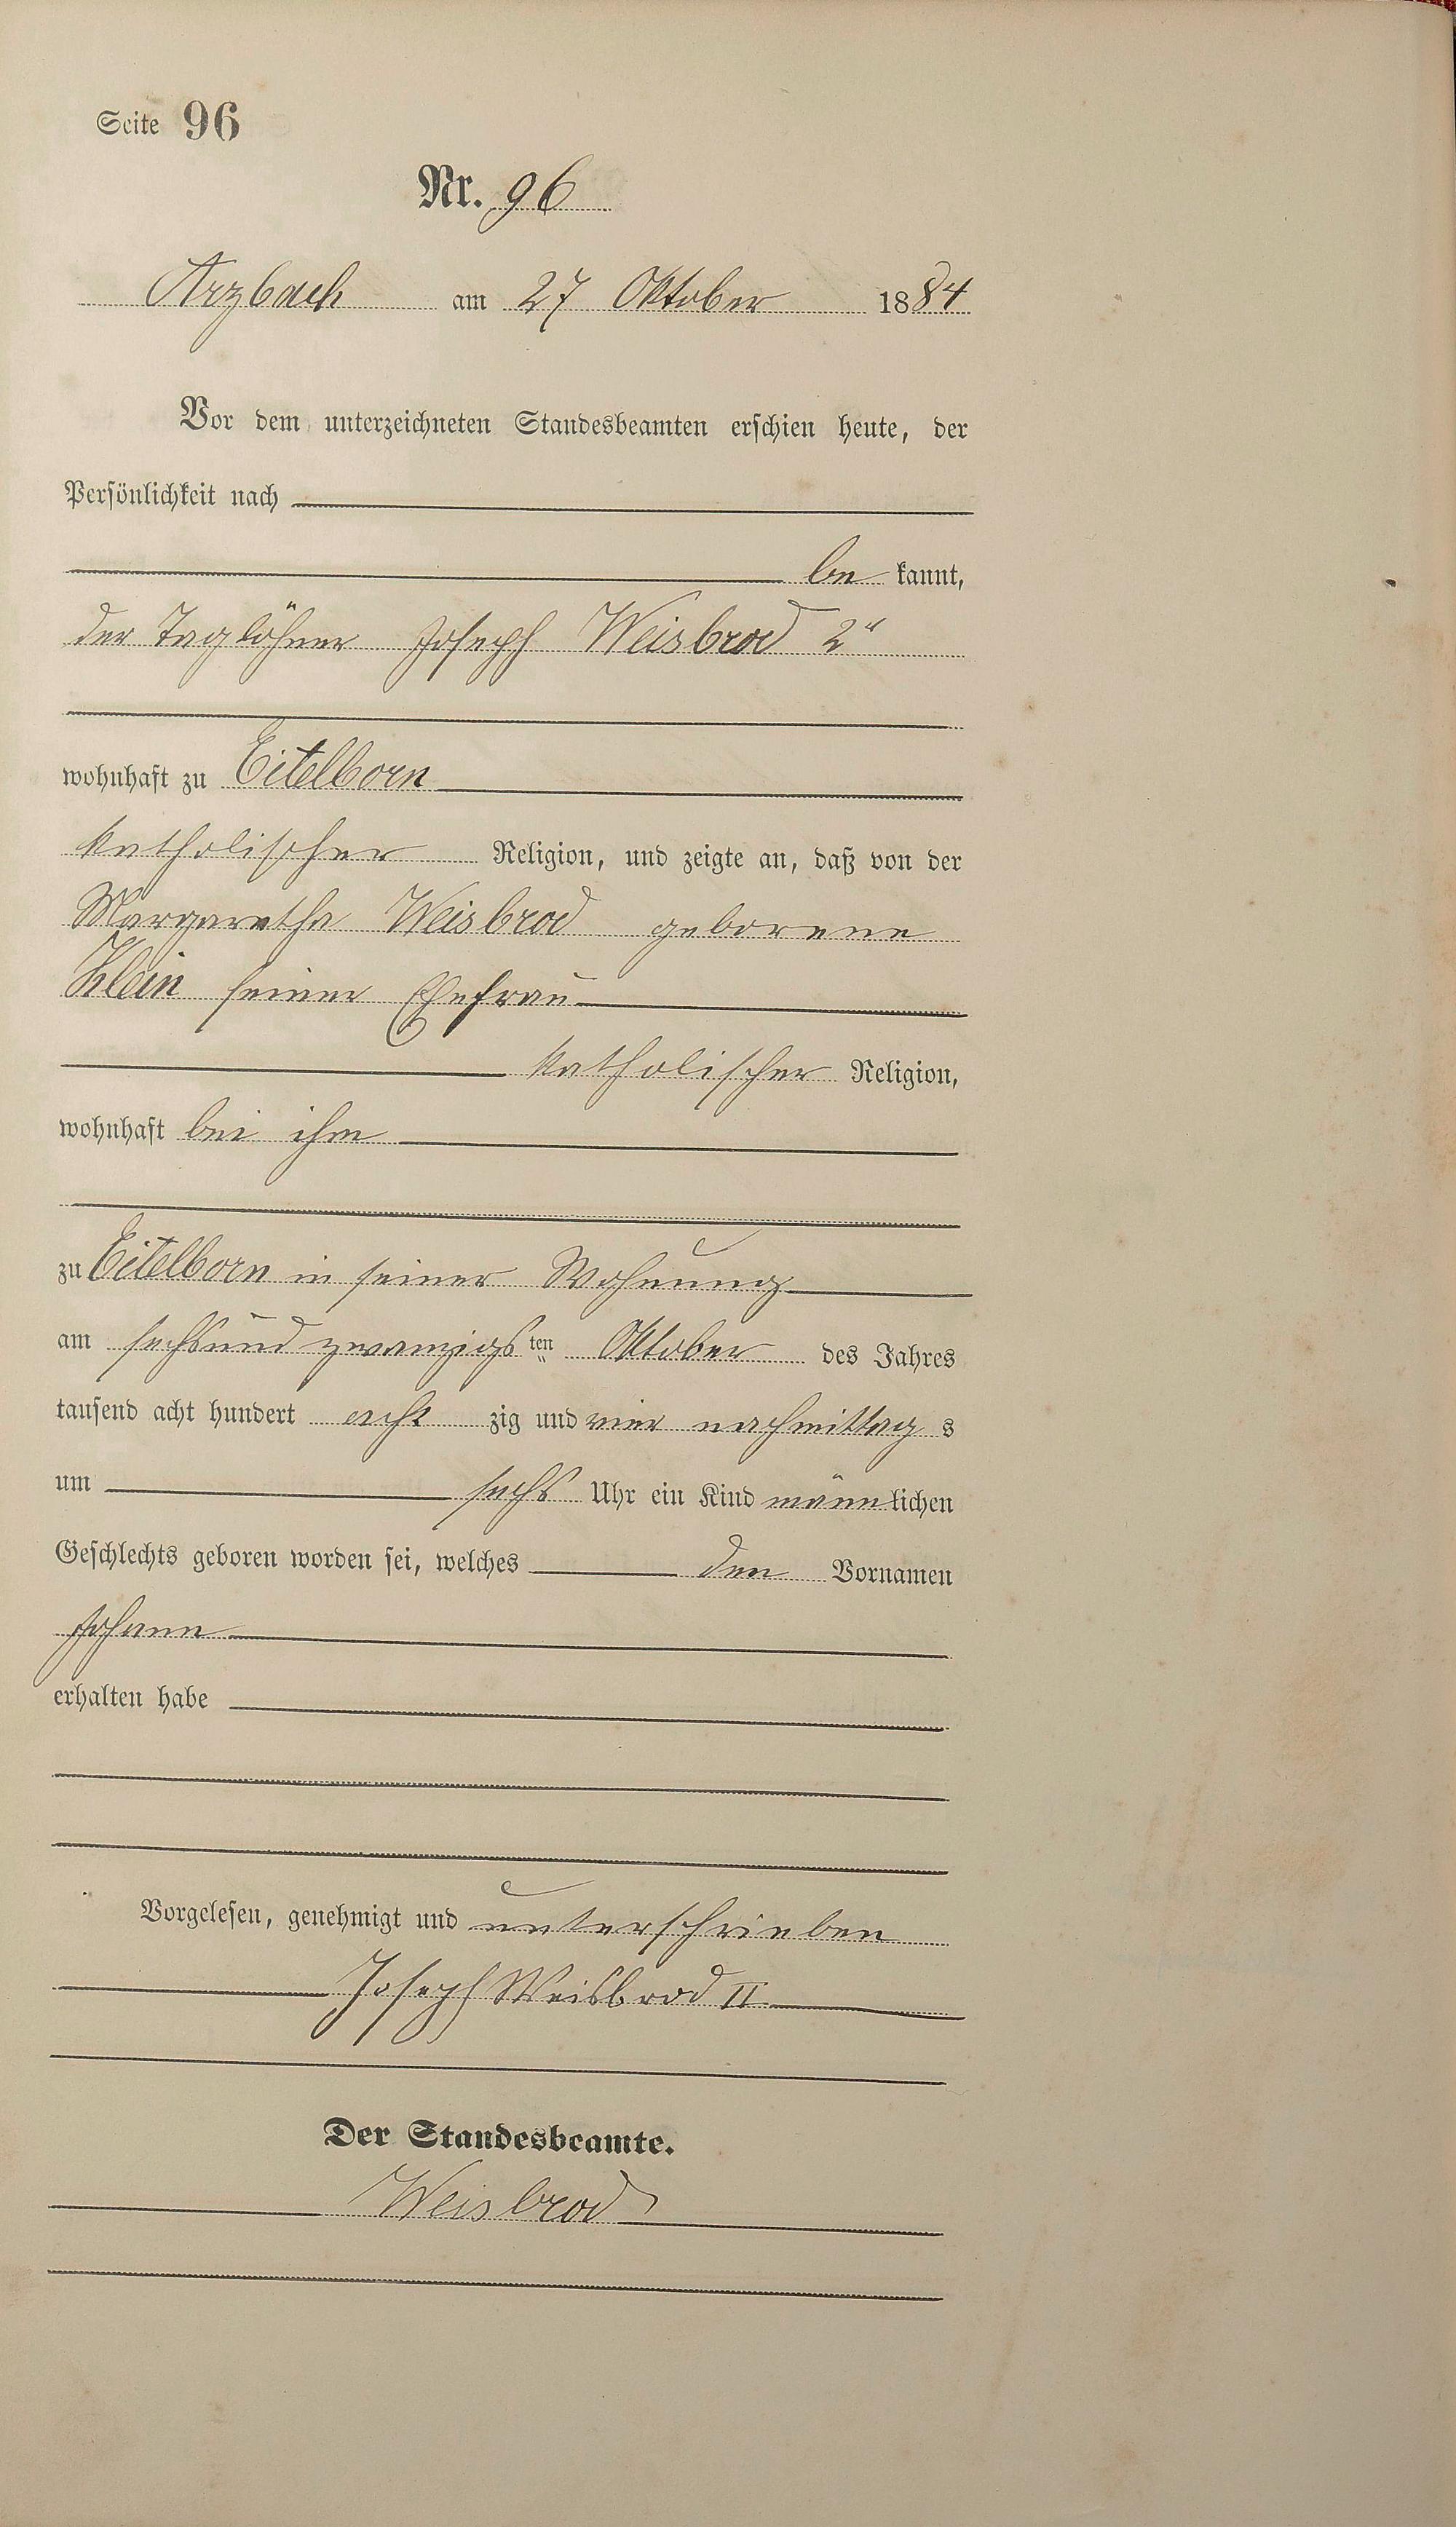 Seite 96
Nr. 96
Arzbach am 27 Oktober 1884
Vor dem unterzeichneten Standesbeamten erschien heute, der
Persönlichkeit nach
be kannt,
der Taglöhner Joseph Weisbrod 2"
wohnhaft zu Eitelborn
katholischer Religion, und zeigte an, daß von der
Margaretha Weisbrod geborene
Klein seiner Ehefrau
katholischer Religion,
wohnhaft bei ihm
zu Eitelborn in seiner Wohnung
am sechsundzwanzigsten Oktober des Jahres
tausend acht hundert acht zig und vier nachmittag s
um sechs Uhr ein Kind männlichen
Geschlechts geboren worden sei, welches den Vornamen
Johann
erhalten habe
Vorgelesen, genehmigt und unterschrieben
Joseph Weisbrod II
Der Standesbeamte.
Weisbrod